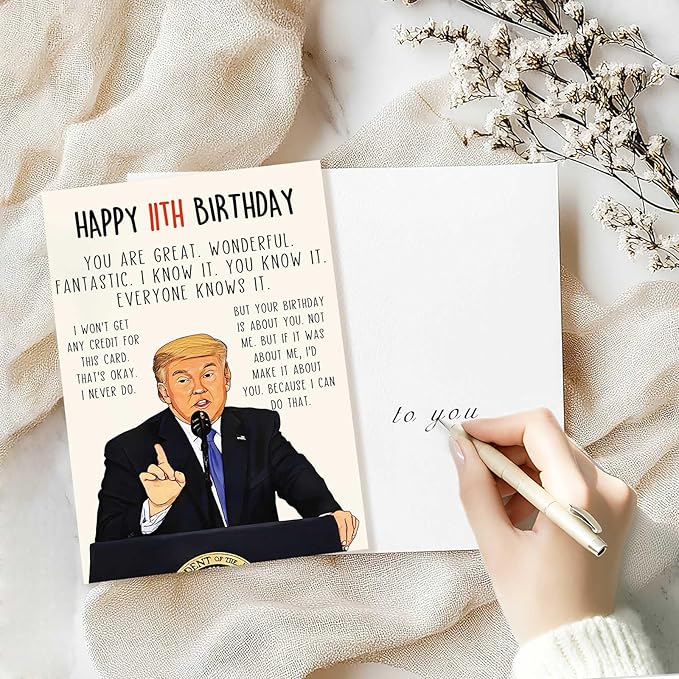 HAPPY 11TH BIRTHDAY
YOU ARE GREAT. WONDERFUL.
FANTASTIC. I KNOW IT. YOU KNOW IT.
EVERYONE KNOWS IT.
I WON'T GET
ANY CREDIT FOR
THIS CARD.
THAT'S OKAY.
I NEVER DO.
BUT YOUR BIRTHDAY
IS ABOUT YOU. NOT
ME. BUT IF IT WAS
ABOUT ME, I'D
MAKE IT ABOUT
YOU. BECAUSE I CAN
DO THAT.
DENT OF THE
to you